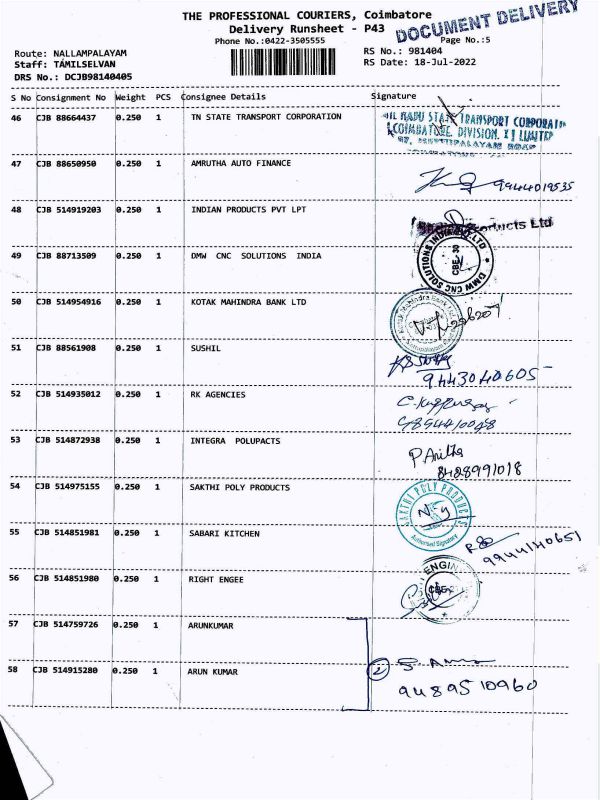 THE PROFESSIONAL COURIERS, Coimbatore
Delivery Runsheet - P43
DOCUMENT DELIVERY
Phone No.:0422-3505555
Page No.:5
Route: NALLAMPALAYAM
RS No.: 981404
Staff: TAMILSELVAN
RS Date: 18-Jul-2022
DRS No.: DCJB98140405
S No Consignment No Weight PCS Consignee Details Signature
46 CJB 88664437 0.250 1 TN STATE TRANSPORT CORPORATION
TRANSPORT CORPORATI
DIVISION. II LIMITED
47 CJB 88650950 0.250 1 AMRUTHA AUTO FINANCE
9944019535
48 CJB 514919203 0.250 1 INDIAN PRODUCTS PVT LPT
Products Ltd
49 CJB 88713509 0.250 1 DMW CNC SOLUTIONS INDIA
DMW CNC SOLUTIONS INDIA (P) LTD
CBE 30
50 CJB 514954916 0.250 1 KOTAK MAHINDRA BANK LTD
Kotak Mahindra Bank Ltd
51 CJB 88561908 0.250 1 SUSHIL
9443040605
52 CJB 514935012 0.250 1 RK AGENCIES
53 CJB 514872938 0.250 1 INTEGRA POLUPACTS
P Anitha
8428991018
54 CJB 514975155 0.250 1 SAKTHI POLY PRODUCTS
SAKTHI POLY PRODUCTS
Authorised Signatory
55 CJB 514851981 0.250 1 SABARI KITCHEN
9944140651
56 CJB 514851980 0.250 1 RIGHT ENGEE
ENGIN
57 CJB 514759726 0.250 1 ARUNKUMAR
58 CJB 514915280 0.250 1 ARUN KUMAR
2
9489510960